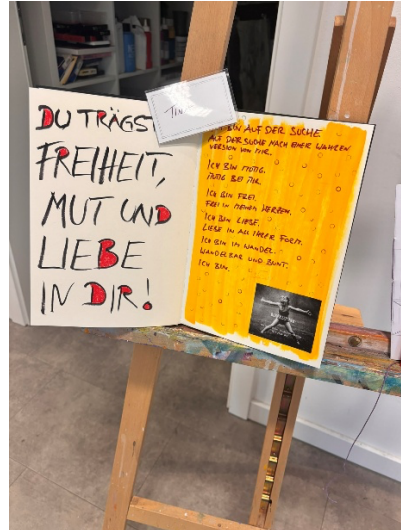 DU TRÄGST
FREIHEIT,
MUT UND
LIEBE
IN DIR!
BIN AUF DER SUCHE
AUF DER SUCHE NACH EINER WAHREN
VERSION VON MIR.
ICH BIN MUTIG.
MUTIG BEI MIR.
ICH BIN FREI.
FREI IN MEINEM HERZEN.
ICH BIN LIEBE.
LIEBE IN ALL IHRER FORM.
ICH BIN IM WANDEL.
WANDELBAR UND BUNT.
ICH BIN.